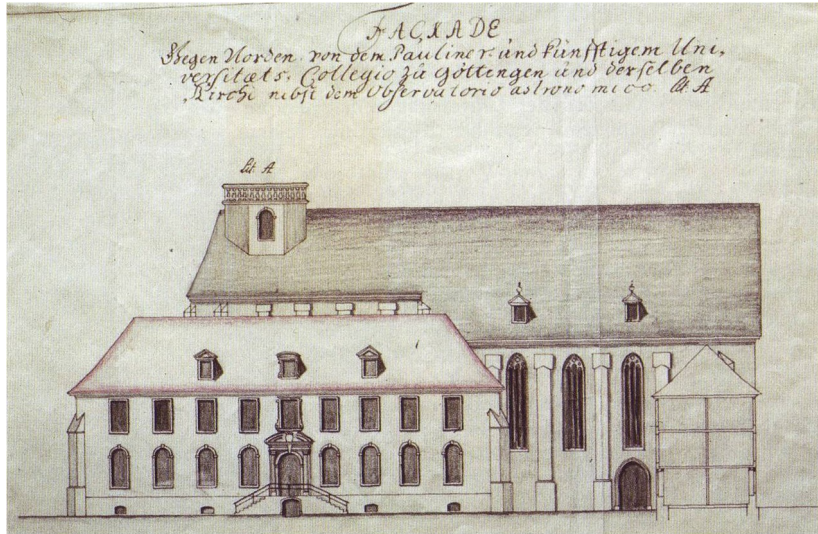 FACXADE
Gegen Norden von dem Pauliner und künfftigem Uni,
versitæts, Collegio zu Göttengen und derselben
Kirche nebst dem Observatorio astronomico. lit. A
lit. A